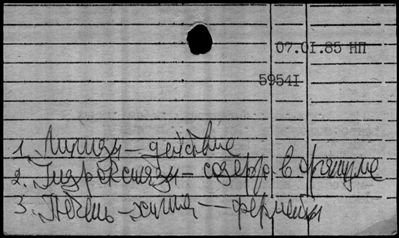 07.01.85 НП
59541
1. Лиазы – действие
2. Гидроксилазы – содерж. в организме
3. Печень – химия – ферменты